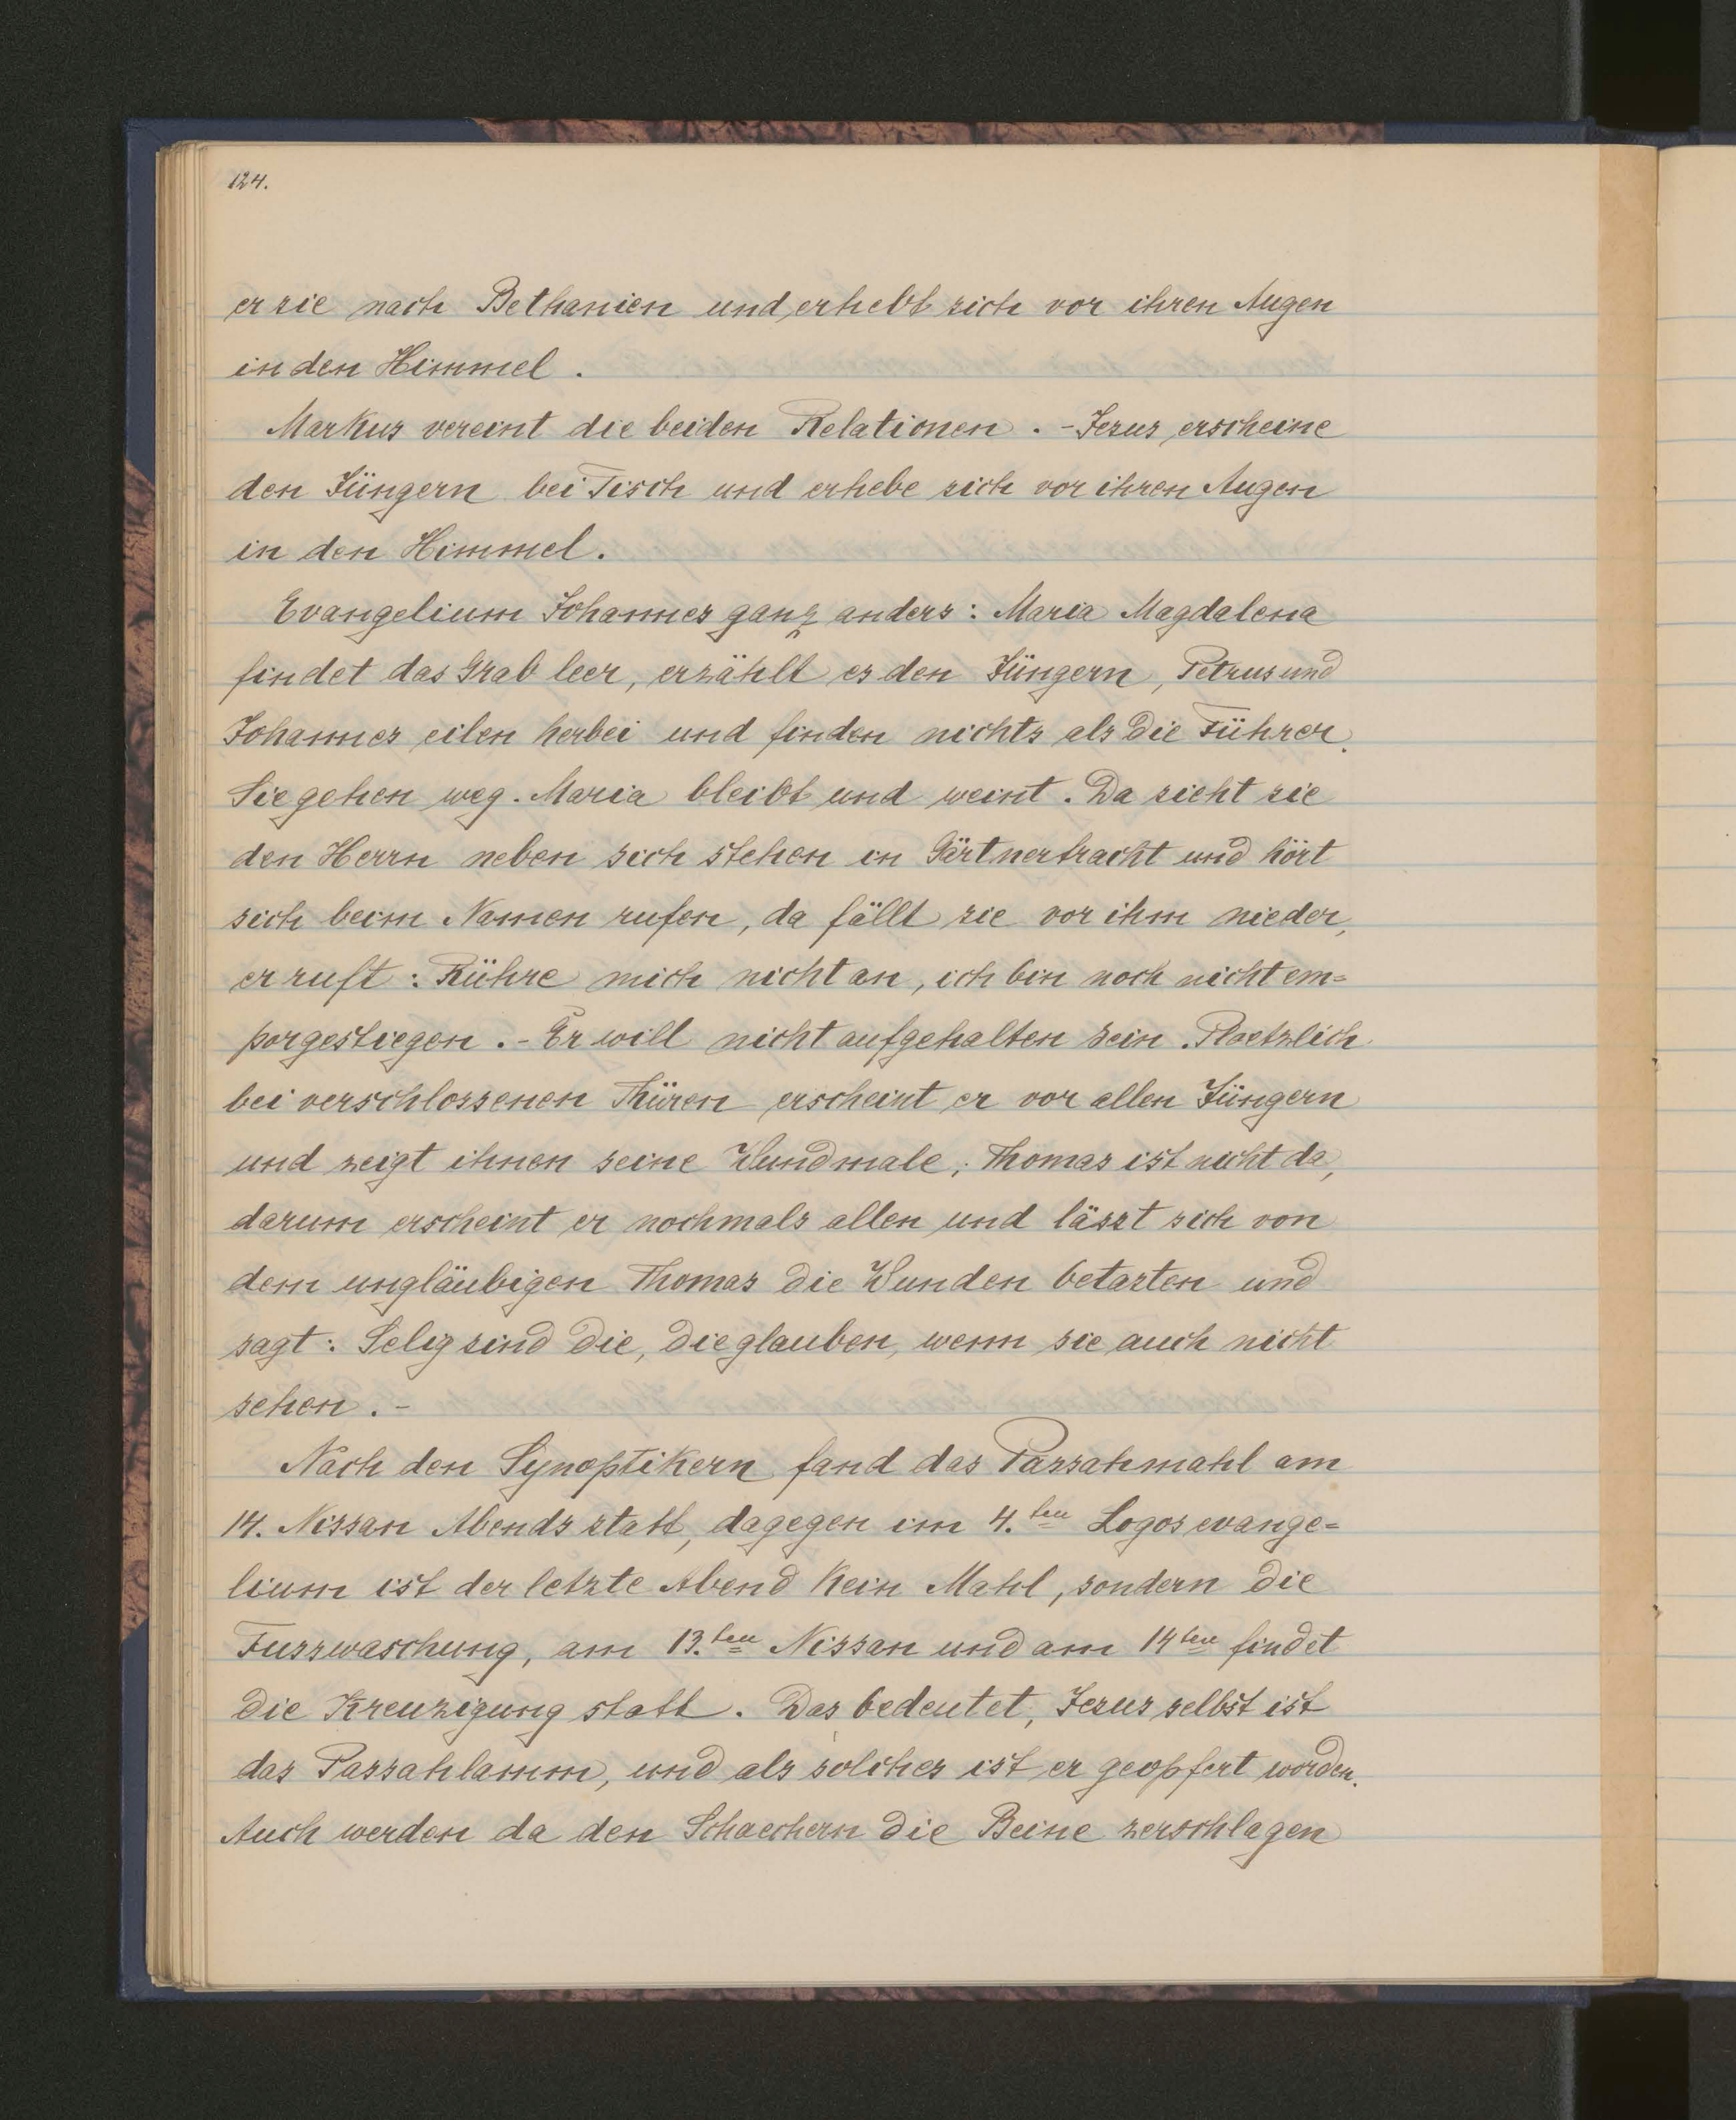 124.
er sie nach Bethanien und erhebt sich vor ihren Augen
in den Himmel.
Markus vereint die beiden Relationen. - Jesus erscheine
den Jüngern bei Tisch und erhebe sich vor ihren Augen
in den Himmel.
Evangelium Johannes ganz anders: Maria Magdalena
findet das Grab leer, erzählt es den Jüngern, Petrus und
Johannes eilen herbei und finden nichts als die Tührer.
Sie gehen weg. Maria bleibt und weint. Da sieht sie
den Herrn neben sich stehen in Gärtnertracht und hört
sich beim Namen rufen, da fällt sie vor ihm nieder,
er ruft: Rühre mich nicht an, ich bin noch nicht em=
porgestiegen. - Er will nicht aufgehalten sein. Ploetzlich
bei verschlossenen Thüren erscheint er vor allen Jüngern
und zeigt ihnen seine Wundmale; Thomas ist nicht da,
darum erscheint er nochmals allen und lässt sich von
dem ungläubigen Thomas die Wunden betasten und
sagt: Selig sind die, die glauben, wenn sie auch nicht
sehen. -
Nach den Synoptikern fand das Passahmahl am
14. Nissan Abends statt, dagegen im 4.ten Logosevange=
lium ist der letzte Abend kein Mahl, sondern die
Fusswaschung, am 13.ten Nissan und am 14ten findet
die Kreuzigung statt. Das bedeutet, Jesus selbst ist
das Passahlamm, und als solches ist er geopfert worden.
Auch werden da den Schaechern die Beine zerschlagen